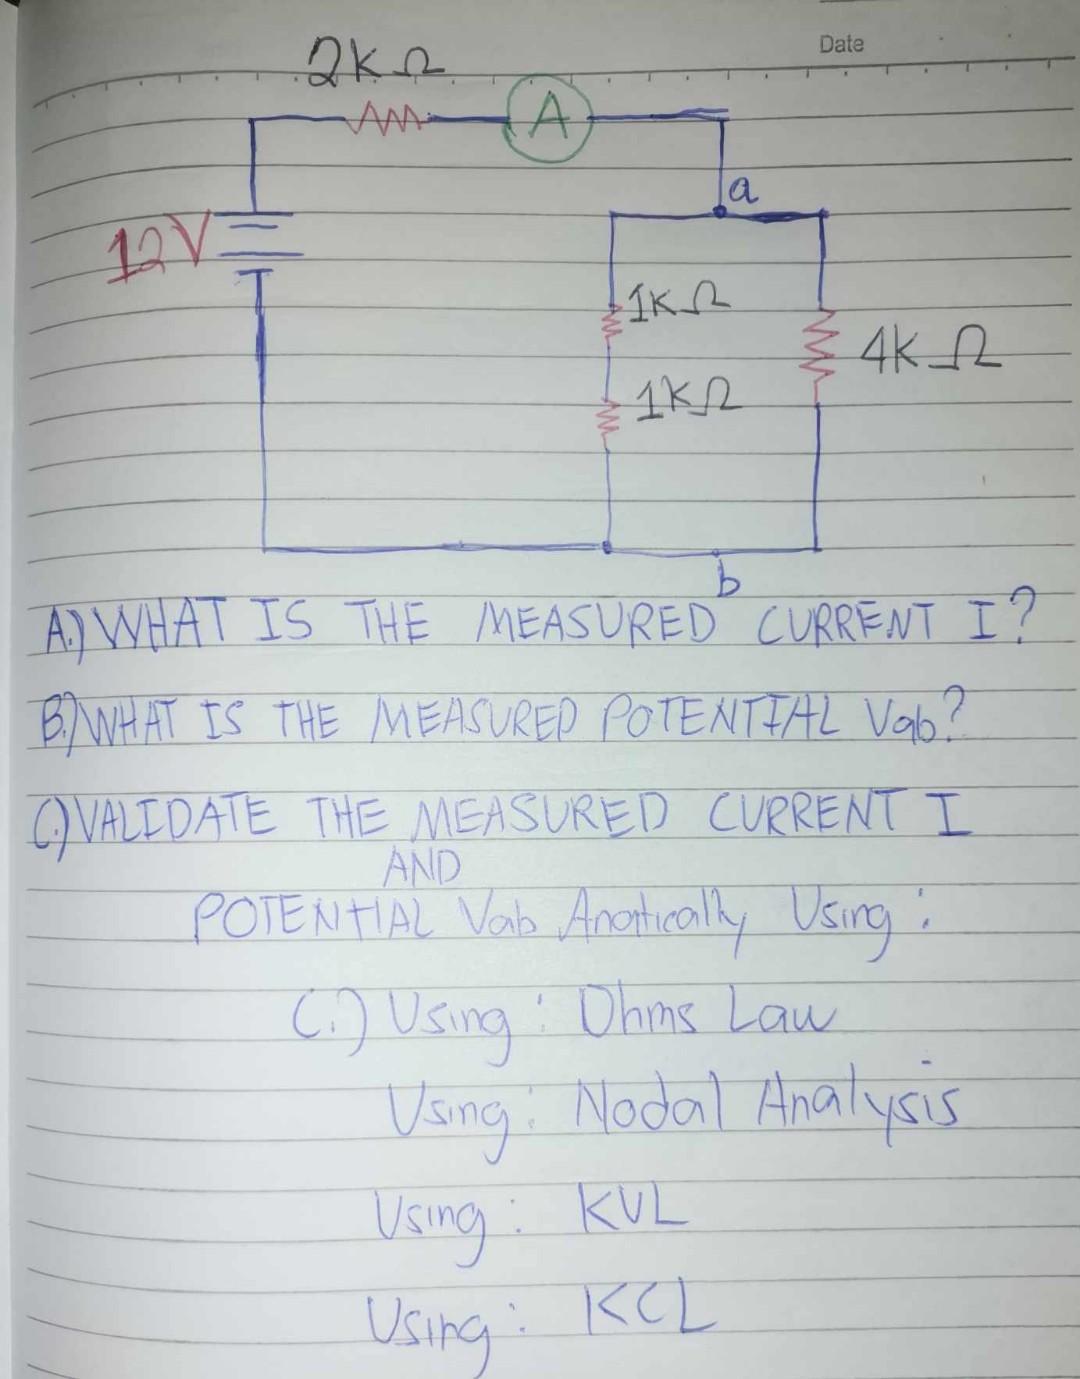 Date
2K Ω
A
a
12V
1K Ω
4K Ω
1K Ω
b
A.) WHAT IS THE MEASURED CURRENT I?
B.) WHAT IS THE MEASURED POTENTIAL Vab?
C.) VALIDATE THE MEASURED CURRENT I
AND
POTENTIAL Vab Anatically Using :
C.) Using : Ohms Law
Using : Nodal Analysis
Using : KVL
Using : KCL